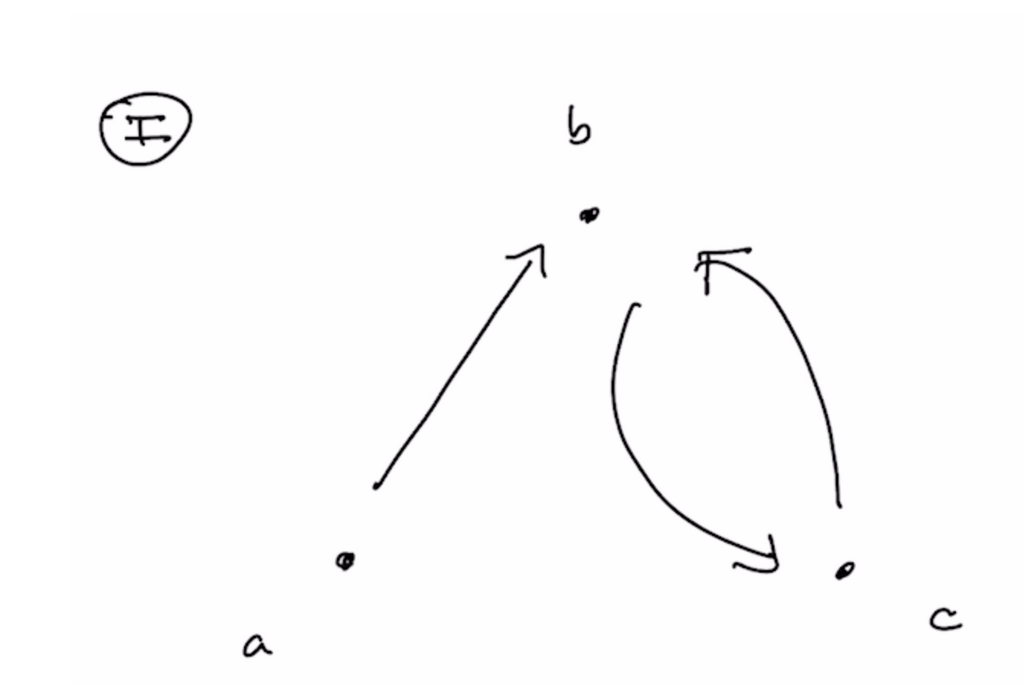 I
b
a
c